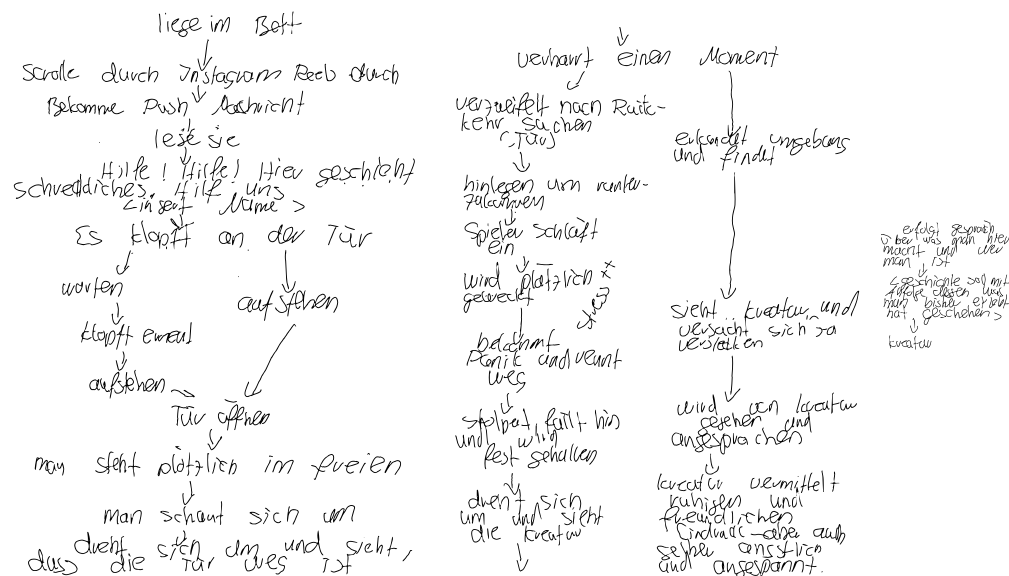 liege im Bett
Scrolle durch Instagram Reels durch
Bekomme Push Nachricht
lese sie
Hilfe! Hilfe! Hier geschieht
schreckliches. Hilf uns
<insert Name>
Es klopft an der Tür
warten
klopft erneut
aufstehen
aufstehen
Tür öffnen
man steht plötzlich im freien
man schaut sich um
dreht sich um und sieht,
dass die Tür weg ist
verharrt einen Moment
verzweifelt nach Rück-
kehr suchen
(Tür)
hinlegen um runter-
zukommen
Spieler schläft
ein
wird plötzlich
geweckt
stress ++
bekommt
Panik und rennt
weg
stolpert fällt hin
und wird
fest gehalten
dreht sich
um und sieht
die kreatur
erkundet umgebung
und findet
sieht kreatur und
versucht sich zu
verstecken
wird von kreatur
gesehen und
angesprochen
kreatur vermittelt
ruhigen und
freundlichen
Eindruck - aber auch
selber ängstlich
und angespannt.
erfolgt gespräch
über was man hier
macht und wer
man ist
<geschichte soll mit
dessen was
man bisher erlebt
hat geschehen>
kreatur